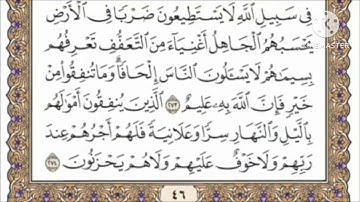 فِى سَبِيلِ ٱللَّهِ لَا يَسْتَطِيعُونَ ضَرْبًا فِى ٱلْأَرْضِ
يَحْسَبُهُمُ ٱلْجَاهِلُ أَغْنِيَآءَ مِنَ ٱلتَّعَفُّفِ تَعْرِفُهُم
بِسِيمَٰهُمْ لَا يَسْـَٔلُونَ ٱلنَّاسَ إِلْحَافًا ۗ وَمَا تُنفِقُوا۟ مِنْ
خَيْرٍ فَإِنَّ ٱللَّهَ بِهِۦ عَلِيمٌ ٢٧٣ ٱلَّذِينَ يُنفِقُونَ أَمْوَٰلَهُم
بِٱلَّيْلِ وَٱلنَّهَارِ سِرًّا وَعَلَانِيَةً فَلَهُمْ أَجْرُهُمْ عِندَ
رَبِّهِمْ وَلَا خَوْفٌ عَلَيْهِمْ وَلَا هُمْ يَحْزَنُونَ ٢٧٤
٤٦